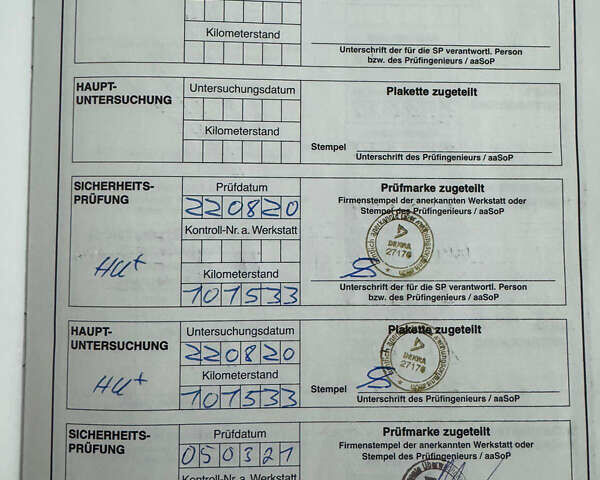 Kilometerstand
Unterschrift der für die SP verantwortl. Person
bzw. des Prüfingenieurs / aaSoP
HAUPT-
UNTERSUCHUNG
Untersuchungsdatum
Plakette zugeteilt
Kilometerstand
Stempel
Unterschrift des Prüfingenieurs / aaSoP
SICHERHEITS-
PRÜFUNG
Prüfdatum
Prüfmarke zugeteilt
Firmenstempel der anerkannten Werkstatt oder
Stempel des Prüfingenieurs / aaSoP
220820
Kontroll-Nr. a. Werkstatt
DEKRA
27170
HU+
Kilometerstand
101533
Unterschrift der für die SP verantwortl. Person
bzw. des Prüfingenieurs / aaSoP
HAUPT-
UNTERSUCHUNG
Untersuchungsdatum
Plakette zugeteilt
220820
DEKRA
27170
Kilometerstand
HU+
101533
Stempel
Unterschrift des Prüfingenieurs / aaSoP
SICHERHEITS-
PRÜFUNG
Prüfdatum
Prüfmarke zugeteilt
Firmenstempel der anerkannten Werkstatt oder
Stempel des Prüfingenieurs / aaSoP
050321
Kontroll-Nr. a. Werkstatt